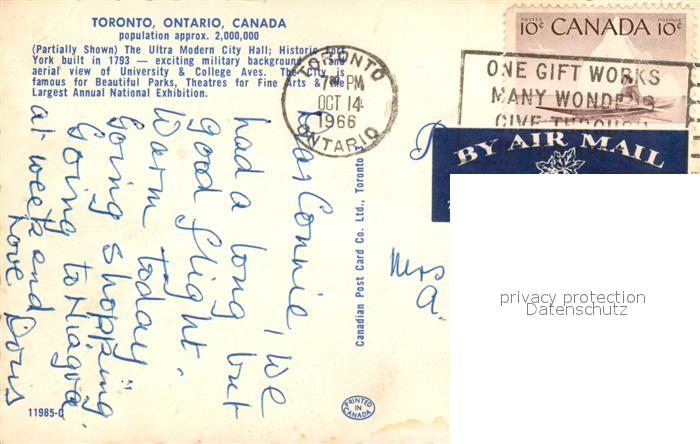 TORONTO, ONTARIO, CANADA
population approx. 2,000,000
(Partially Shown) The Ultra Modern City Hall; Historic Fort
York built in 1793 — exciting military background and
aerial view of University & College Aves. The City is
famous for Beautiful Parks, Theatres for Fine Arts & the
Largest Annual National Exhibition.
POSTES POSTAGE
10¢ CANADA 10¢
TORONTO
7 PM
OCT 14
1966
ONTARIO
ONE GIFT WORKS
MANY WONDERS
GIVE THROUGH
BY AIR MAIL
Dear Connie, We
had a long but
good flight.
Warm today
Going shopping.
Going to Niagra
at week end
Love Doris
Canadian Post Card Co. Ltd., Toronto 3
Mrs
A
privacy protection
Datenschutz
PRINTED IN CANADA
11985-C